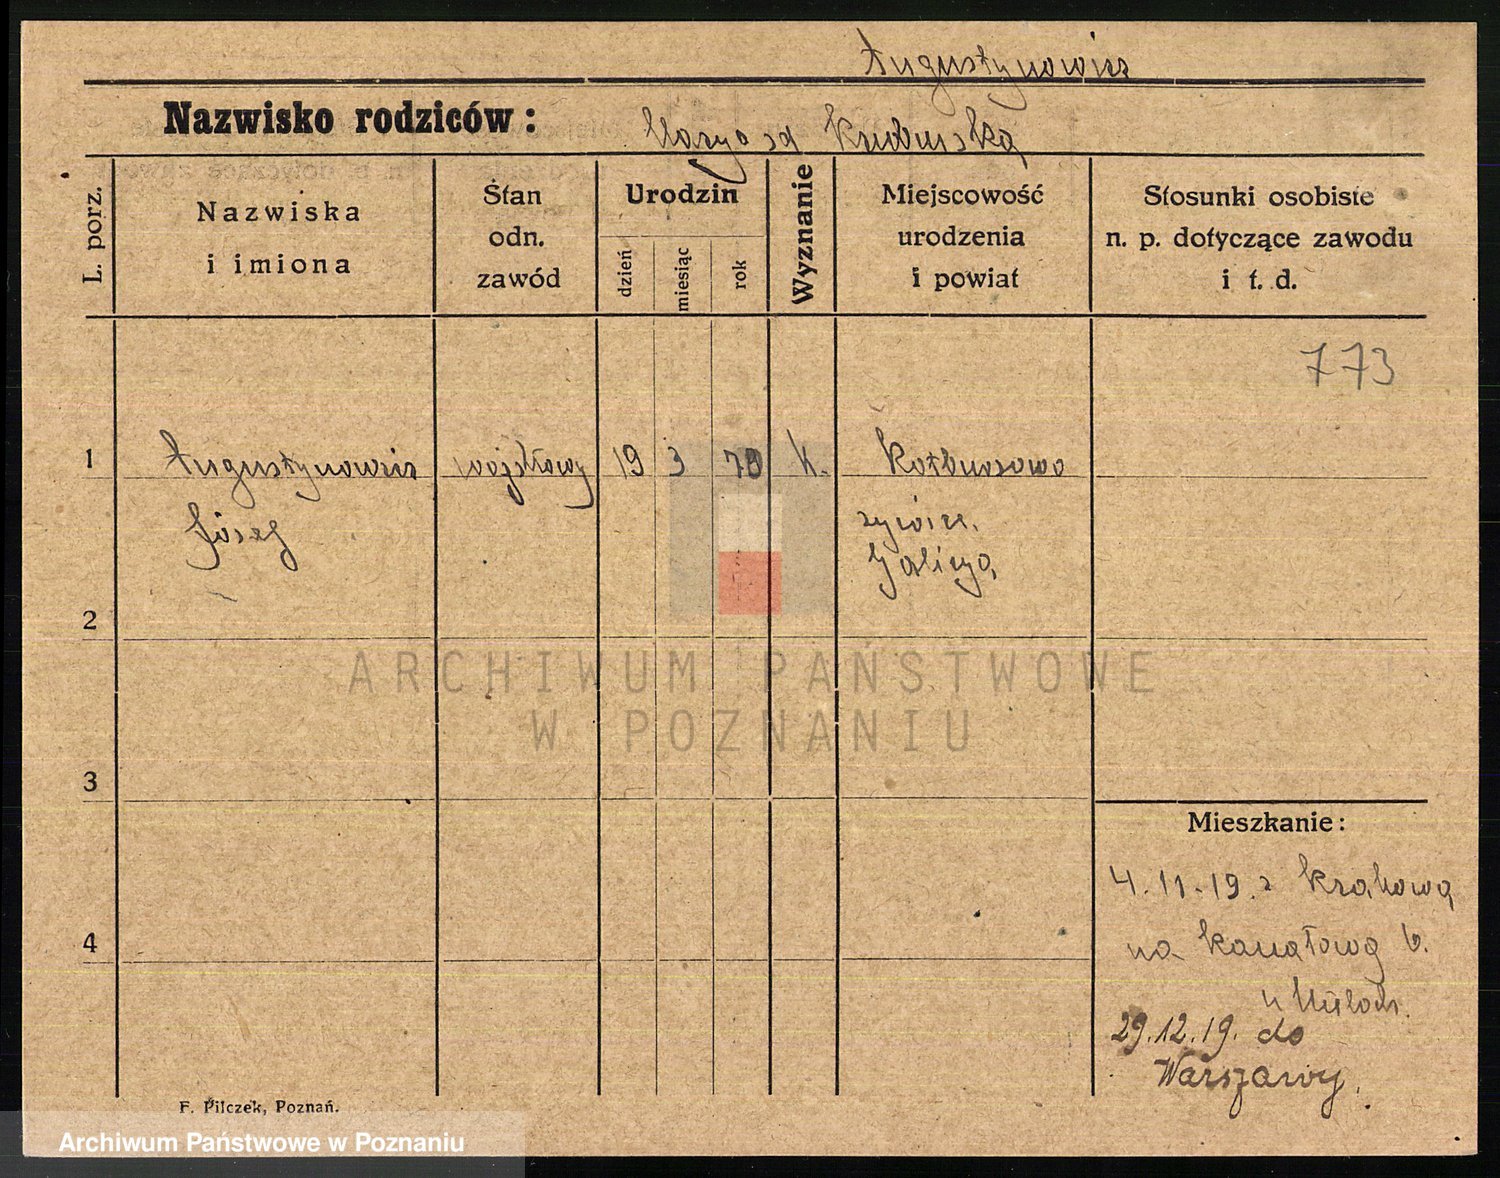 Augustynowicz
Nazwisko rodziców:
Marya
L. porz.
Nazwiska
i imiona
Stan
odn.
zawód
Urodzin
dzień
miesiąc
rok
Wyznanie
Miejscowość
urodzenia
i powiat
Stosunki osobiste
n. p. dotyczące zawodu
i t. d.
773
1
Augustynowicz wojskowy 19 3 79 K.
Józef
żywiec.
Galicya
2
ARCHIWUM PAŃSTWOWE
W POZNANIU
3
Mieszkanie:
4.11.19. z Krakowa
4
na Kanałową 6.
u
29.12.19. do
Warszawy.
F. Pilczek, Poznań.
Archiwum Państwowe w Poznaniu